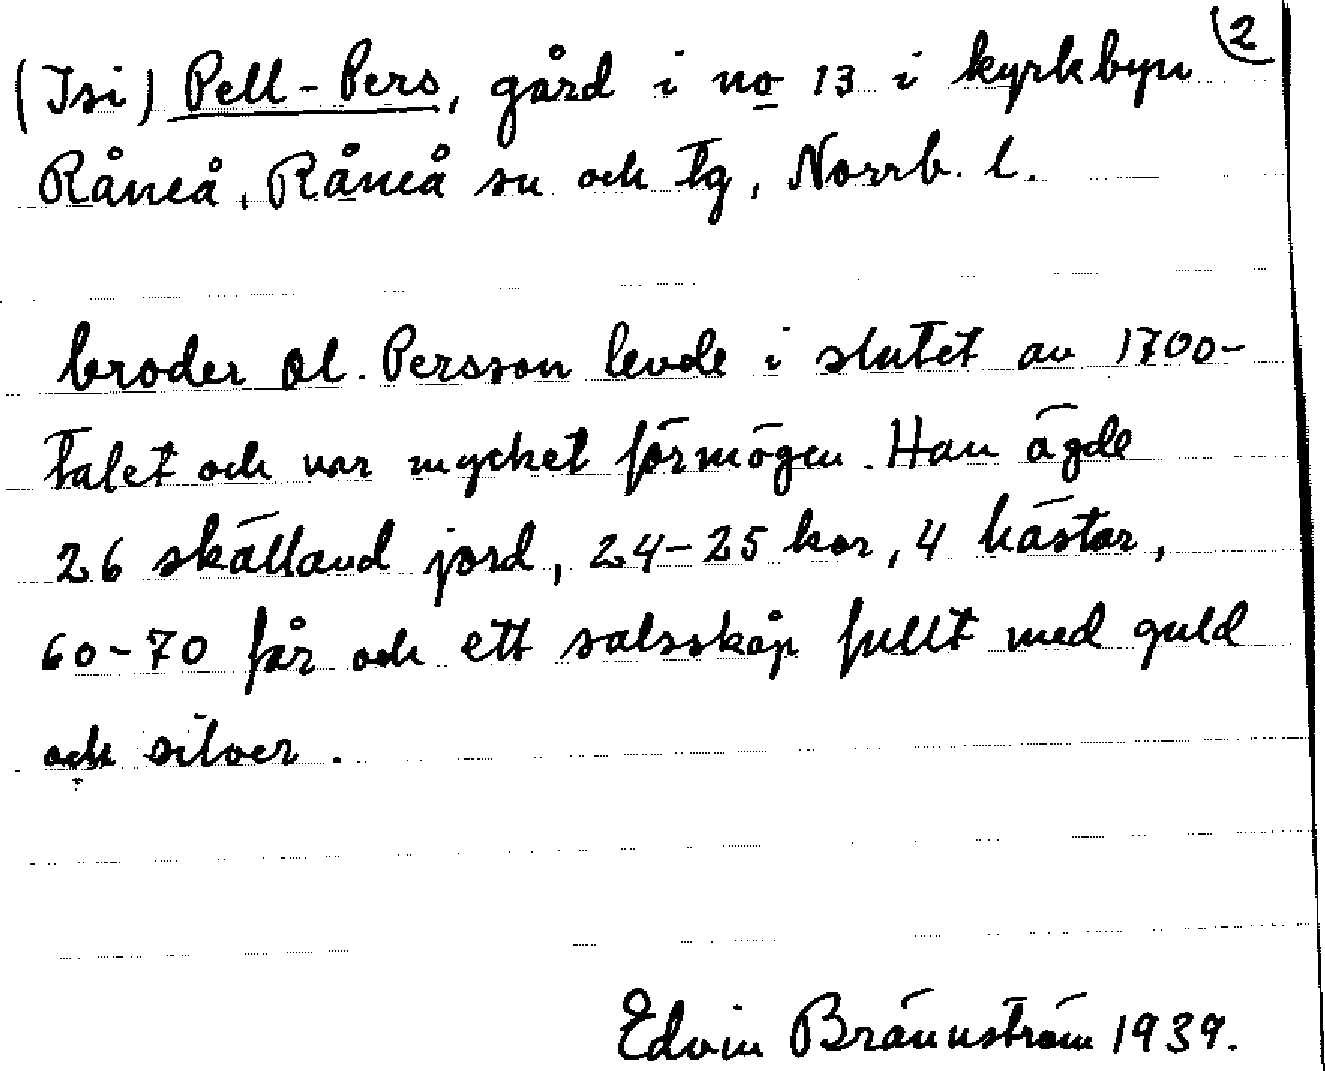 2
(Isi) Pell-Pers, gård i no 13 i kyrkbyn
Råneå, Råneå sn och tg, Norrb. l.
broder Ol. Persson levde i slutet av 1700-
talet och var mycket förmögen. Han ägde
26 skälland jord, 24-25 kor, 4 hästar,
60-70 får och ett salsskåp fullt med guld
och silver.
Edvin Brännström 1939.